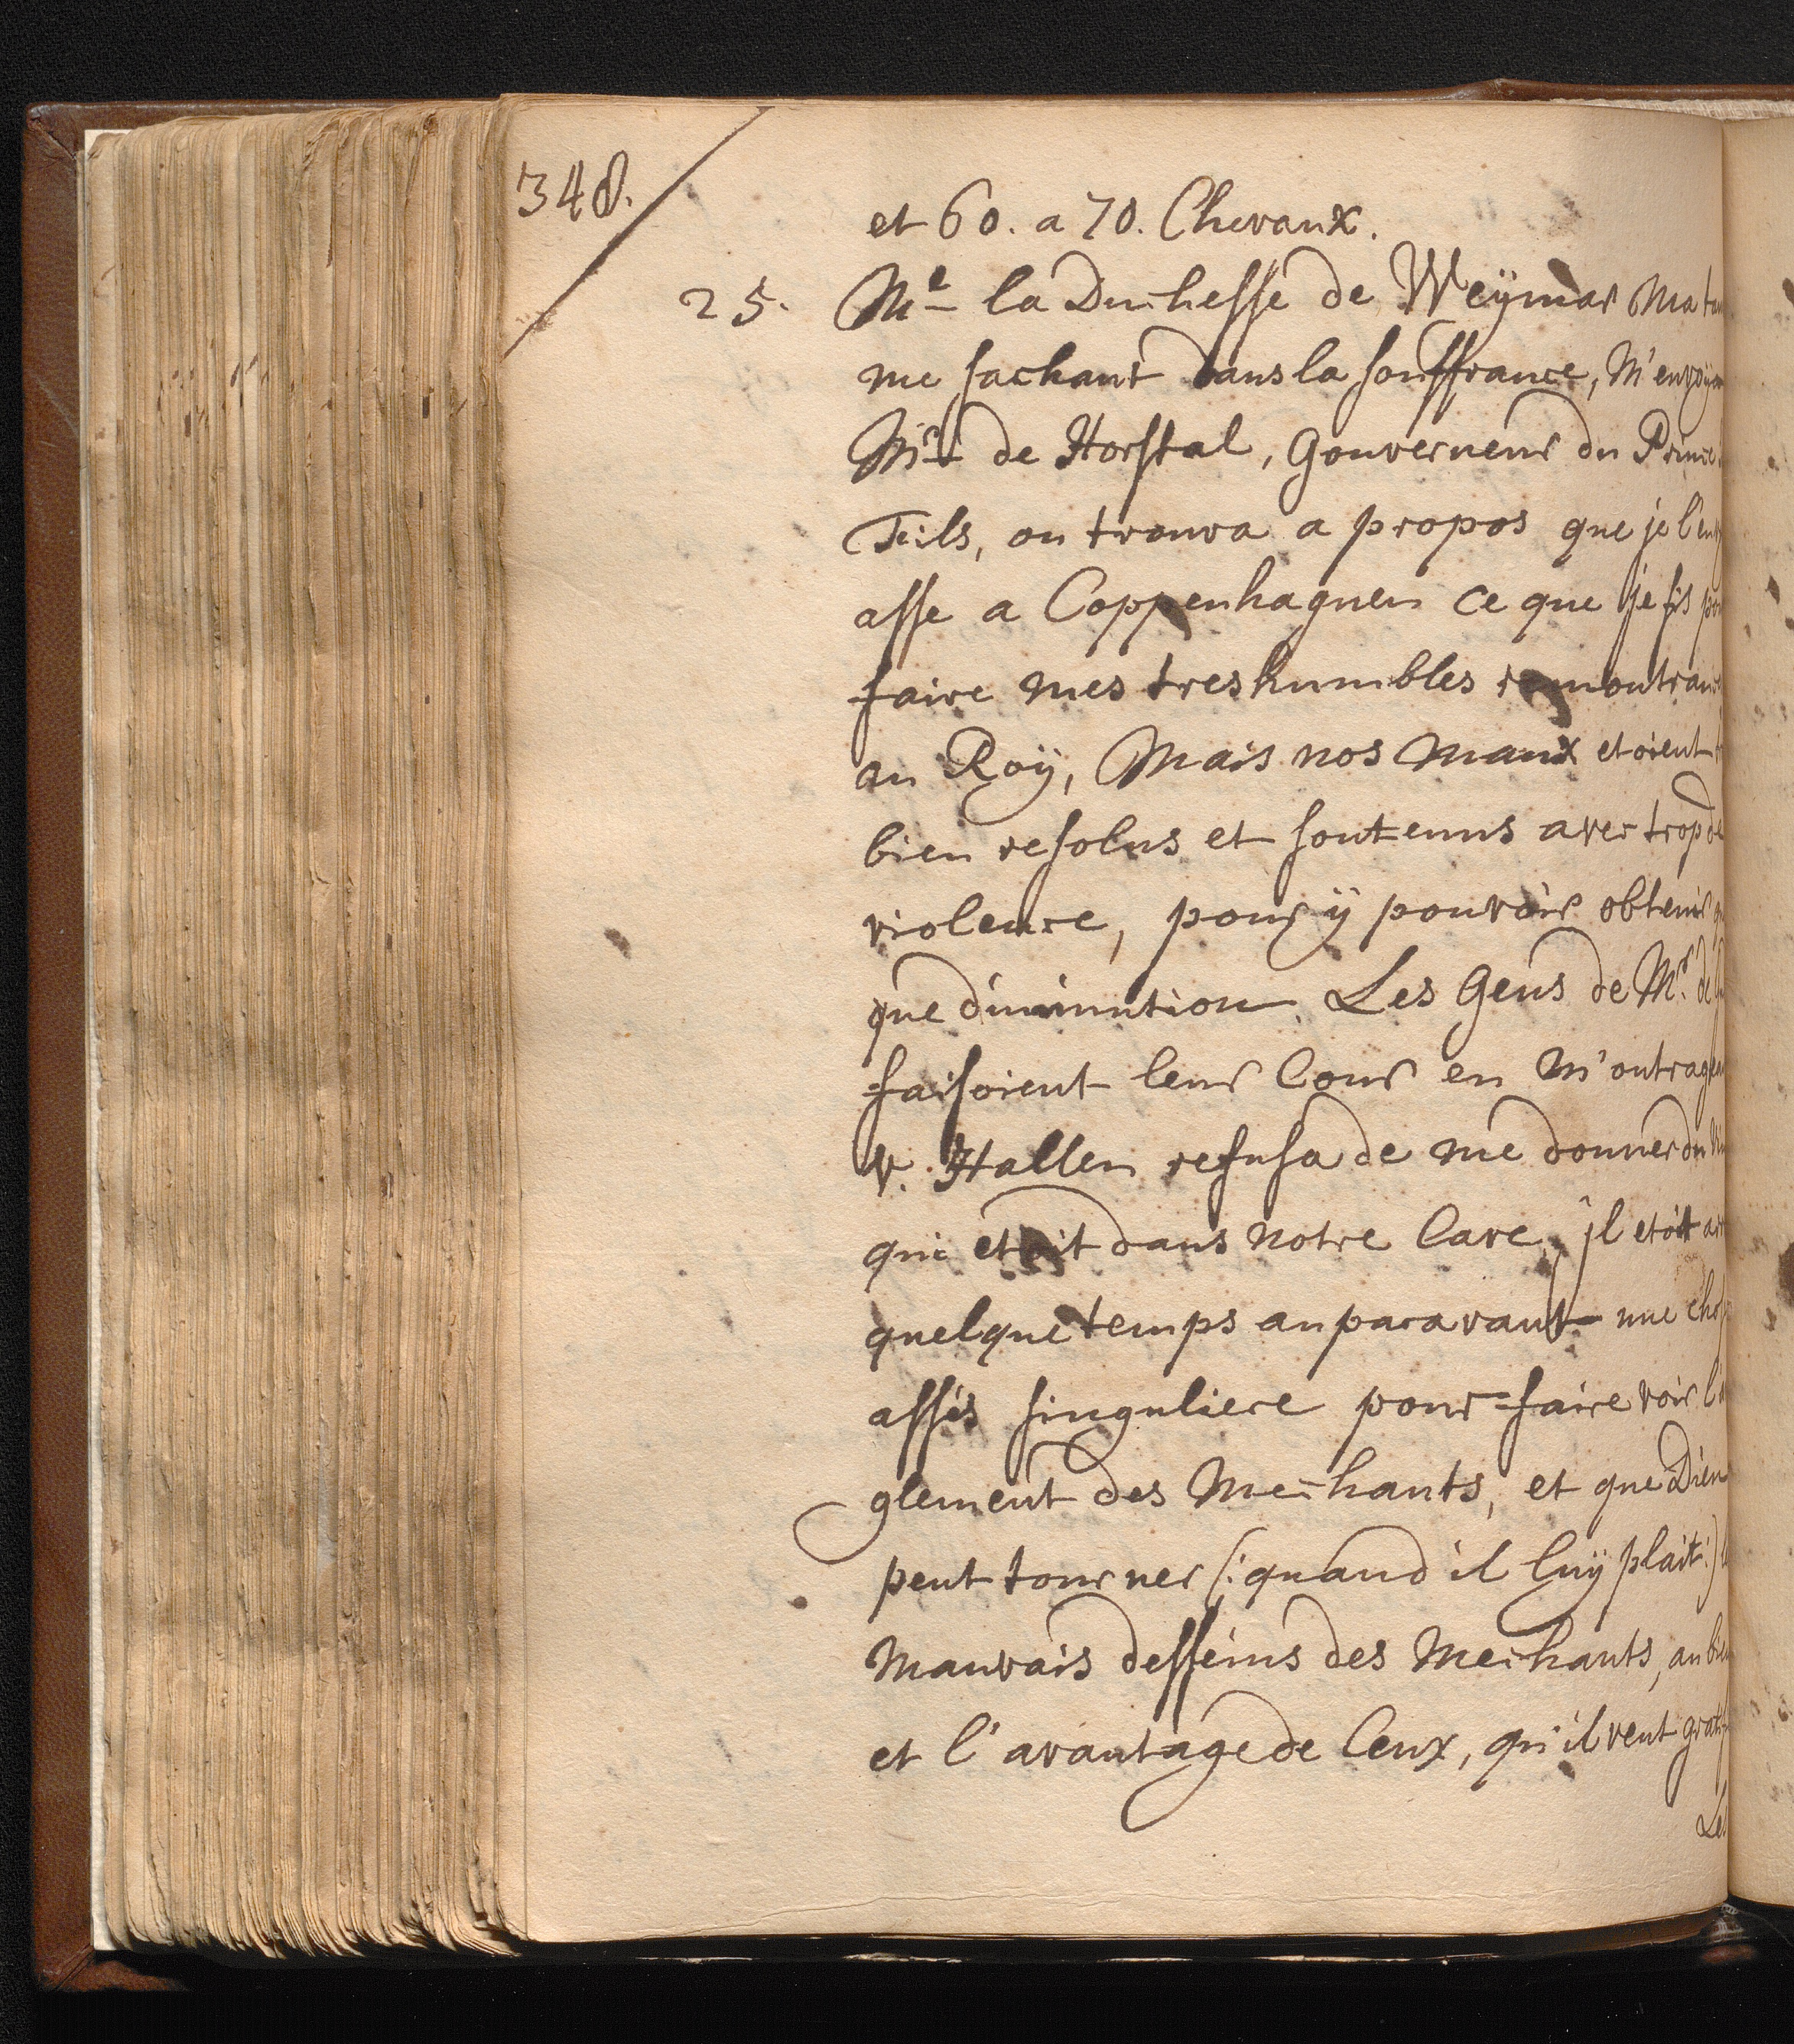 348.
et 60. a 70. Chevaux.
25. Me la Duchesse de Weÿmar Ma
me sachant dans la souffrance, M'envoÿa
Mr de Horstal, Gouverneur du Prince
Fils, on trouva a propos que je l'en
asse a Coppenhaguen Ce que je fis
faire mes treshumbles remontran
au Roÿ, Mais nos Maux etoient
bien resolus et soutenus avec trop de
violence, pour ÿ pouvoir obtenir
que diminution. Les Gens de Mr. de
faisoient leur Cour en M'outragea
v. Hallen refusa de me donner du
qui etoit dans Notre Cave, jl etoit
quelque temps auparavant une cho
assés singuliere pour faire voir
glement des Mechants, et que Dieu
peut tourner (: quand il luÿ plait :)
Mauvais desseins des Mechants, au bie
et l'avantage de Ceux, qu'il veut grati
Les